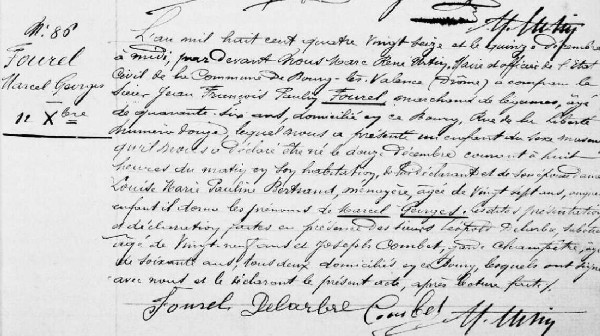 N° 86
Fourel
Marcel Georges
12 Xbre
L'an mil huit cent quatre vingt seize et le quinze décembre
à midi, par devant Nous Marc René Maire et officier de l'État
Civil de la Commune de Bourg-les-Valence (Drôme) a comparu le
Sieur Jean François Paulin Fourel, marchand de légumes, âgé
de quarante-six ans, domicilié en ce Bourg, Rue de la Liberté
numéro douze, lequel nous a présenté un enfant du sexe mascu
qu'il Nous a déclaré être né le douze décembre courant à huit
heures du matin en son habitation, de lui déclarant et de son épouse dame
Louise Marie Pauline Bertrand, ménagère, âgée de vingt sept ans, auquel
enfant il donne les prénoms de Marcel Georges, lesdites présentation
et déclaration faites en présence des sieurs Léopold Delarbre,
âgé de vingt-neuf ans et Joseph Combet, garde champêtre, âgé
de soixante ans, tous deux domiciliés en ce Bourg, lesquels ont signé
avec nous et le déclarant le présent acte, après lecture faite,
Fourel Delarbre Combet